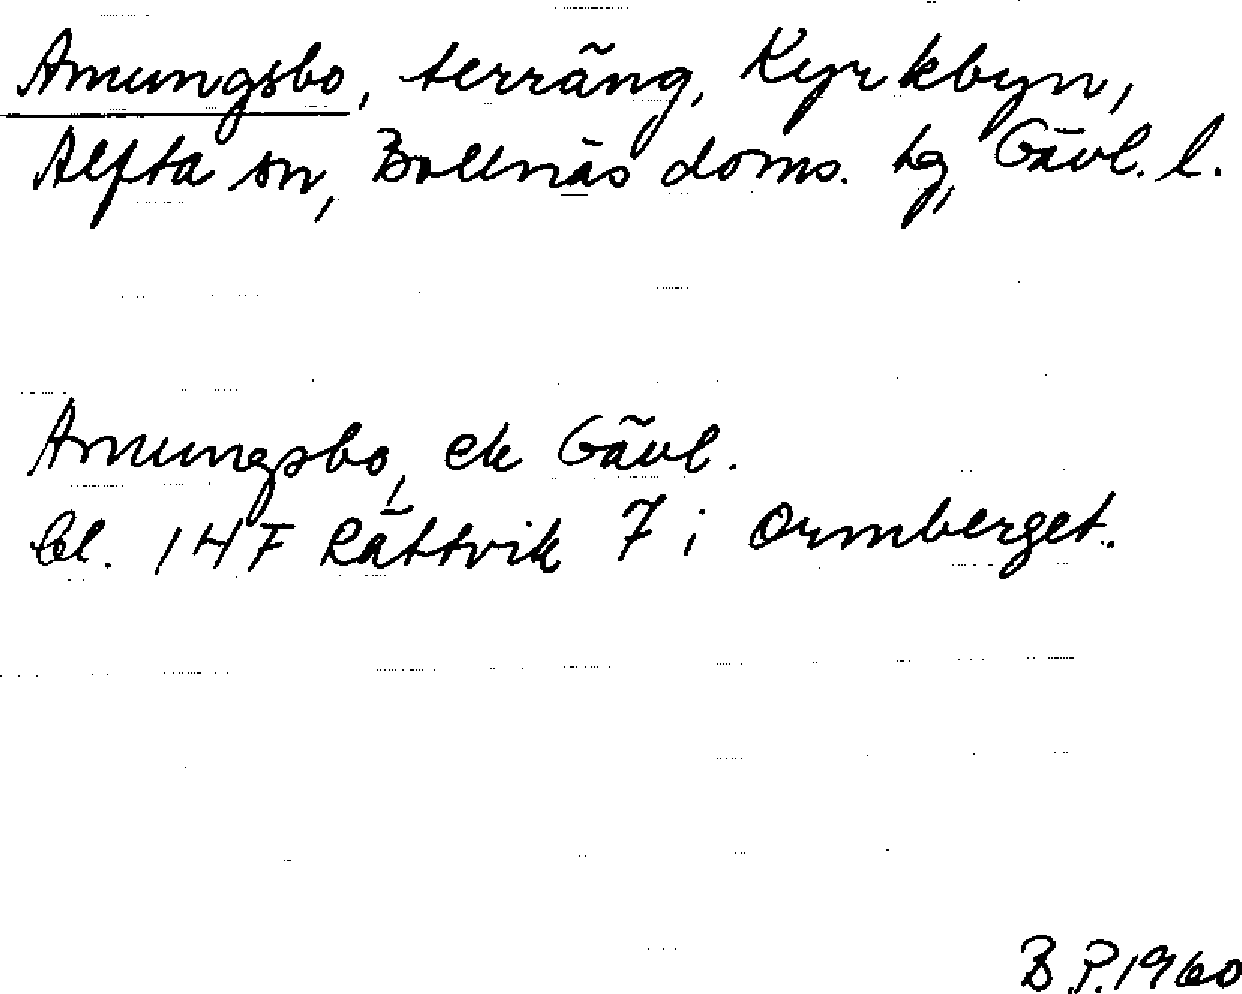 Amungsbo, terräng, Kyrkbyn,
Alfta sn, Bollnäs doms. hg, Gävl. l.
Amungsbo, ek Gävl.
bl. 14F Rättvik 7 i Ormberget.
B P. 1960